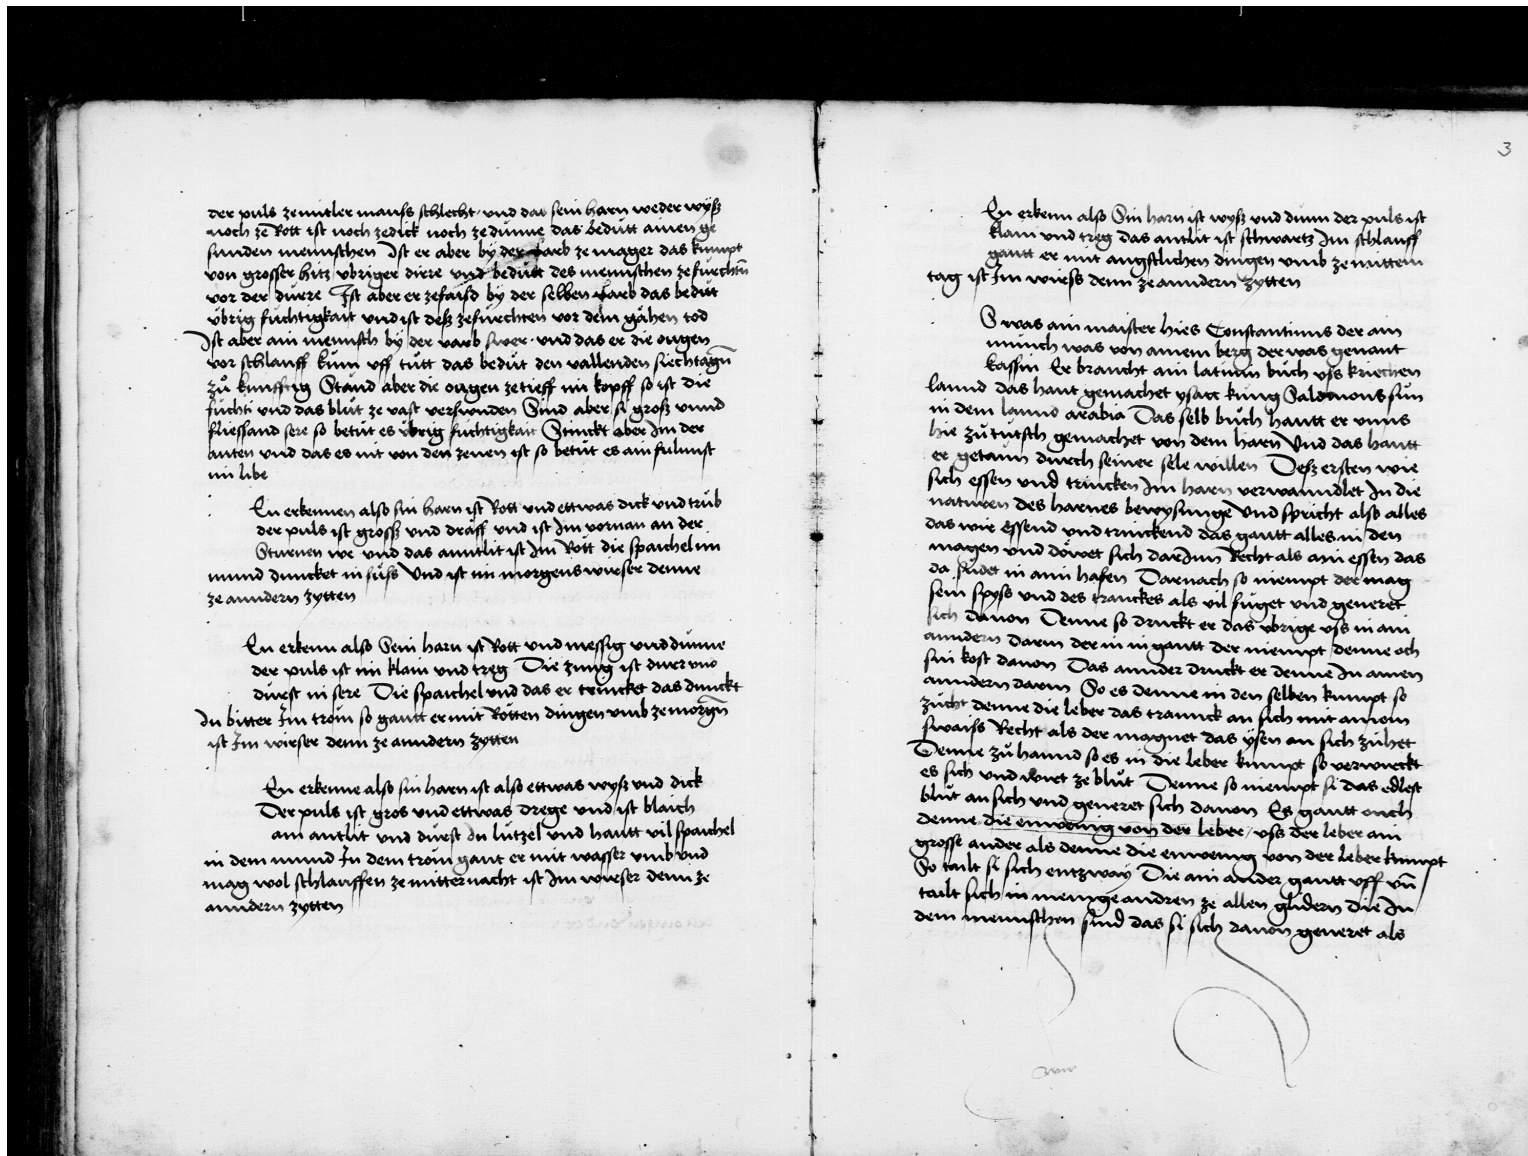 der puls ze mitler mauss schlecht und das sein harn weder wyß
noch ze Rott ist noch ze dick noch ze dunne das bedutt ainen ge
sunden mennschen Ist er aber by der varb ze mager das kumpt
von grosser hitz ubriger diere und bedutt des mennschen ze furchtn̄
vor der duere Ist aber er ze faisd by der selben varb das bedut
übrig fuchtigkait und ist deß ze furchten vor dem gåhen tod
Ist aber ain mennsch by der varb swer und das er die ougen
vor schlauff kum uff tutt das bedut den vallenden siechtagn̄
zů kunfftig Stand aber die ougen ze tieff im kopff so ist die
fuchti und das blůt ze vast verswnden Sind aber si groß unnd
fliessand sere so betut es übrig fuchtigkait Stinckt aber Im der
auten und das es nit von den zenen ist so betut es ain fulnust
im libe
En erkennen also sin harn ist Rott und ettwas dick und trüb
der puls ist gross und dräff und ist Im vornan an der
Sturnen we und das anntlit ist Im Rott die spaichel im
mund duncket in süss Und ist im morgens wirser denne
ze anndern zytten
En erkenn also Sein harn ist Rott und messig und dünne
der puls ist im klain und treg Die zung ist duer und
durst in sere Die spaichel und das er trincket das dunckt
In bitter Im trom so gantt er mit Rotten dingen umb ze morgn̄
ist Im wirser denn ze anndern zytten
En erkenne also sin harn ist also ettwas wyß und dick
Der puls ist gros und ettwas drege und ist blaich
am antlit und durst In lutzel und hantt vil spaichel
in dem mund In dem trom gant er mit wasser umb und
mag wol schlauffen ze mitternacht ist Im wirser denn ze
anndern zytten
3
En erkenn also Sin harn ist wyß und dunn der puls ist
klain und treg das antlit ist schwartz Im schlauff
gantt er mit angstlichen dingen umb ze mittem
tag ist Im wirss denn ze anndern zytten
S was ain maister hies Constantinus der ain
münch was von ainem berg der was genant
kassin Er braucht ain latinin bůch uss kriechen
lannd das haut gemachet ysacc kung Salomons sun
in dem lannd arabia Das selb bůch hantt er unns
hie zů tutsch gemachet von dem harn Und das hantt
er getann durch seiner sele willen Deß ersten wie
sich essen und trincken Im harn verwanndlet In die
naturen des harnes bewysunge Und spricht also alles
das wir essend und trinckend das gantt alles in den
magen und döwet sich darInn Recht als ain essen das
da sudet in aim hafen Darnach so niempt der mag
sein spyss und des tranckes als vil fuget und generet
sich davon Denne so druckt er das ubrige uss in ain
anndern darm der in in gantt der niempt denne och
sin kost davon Das annder druckt er denne In ainen
anndern darm So es denne in den selben kumpt so
zucht denne die leber das tranck an sich mit ainem
swaiss Recht als der magnet das ysen an sich zuhet
Denne zů hannd so es in die leber kumpt so verwurckt
es sich und wirt ze blůt Denne so niempt si das edlest
blůt an sich und generet sich davon Es gantt ouch
denne die enwenig von der leber / uss der leber ain
grosse ander als denne die enwenig von der leber kumpt
So tailt si sich entzway Die ain ander gantt uff un̄
tailt sich in menge andren ze allen glidern die In
dem mennschen sind das si sich davon generet als